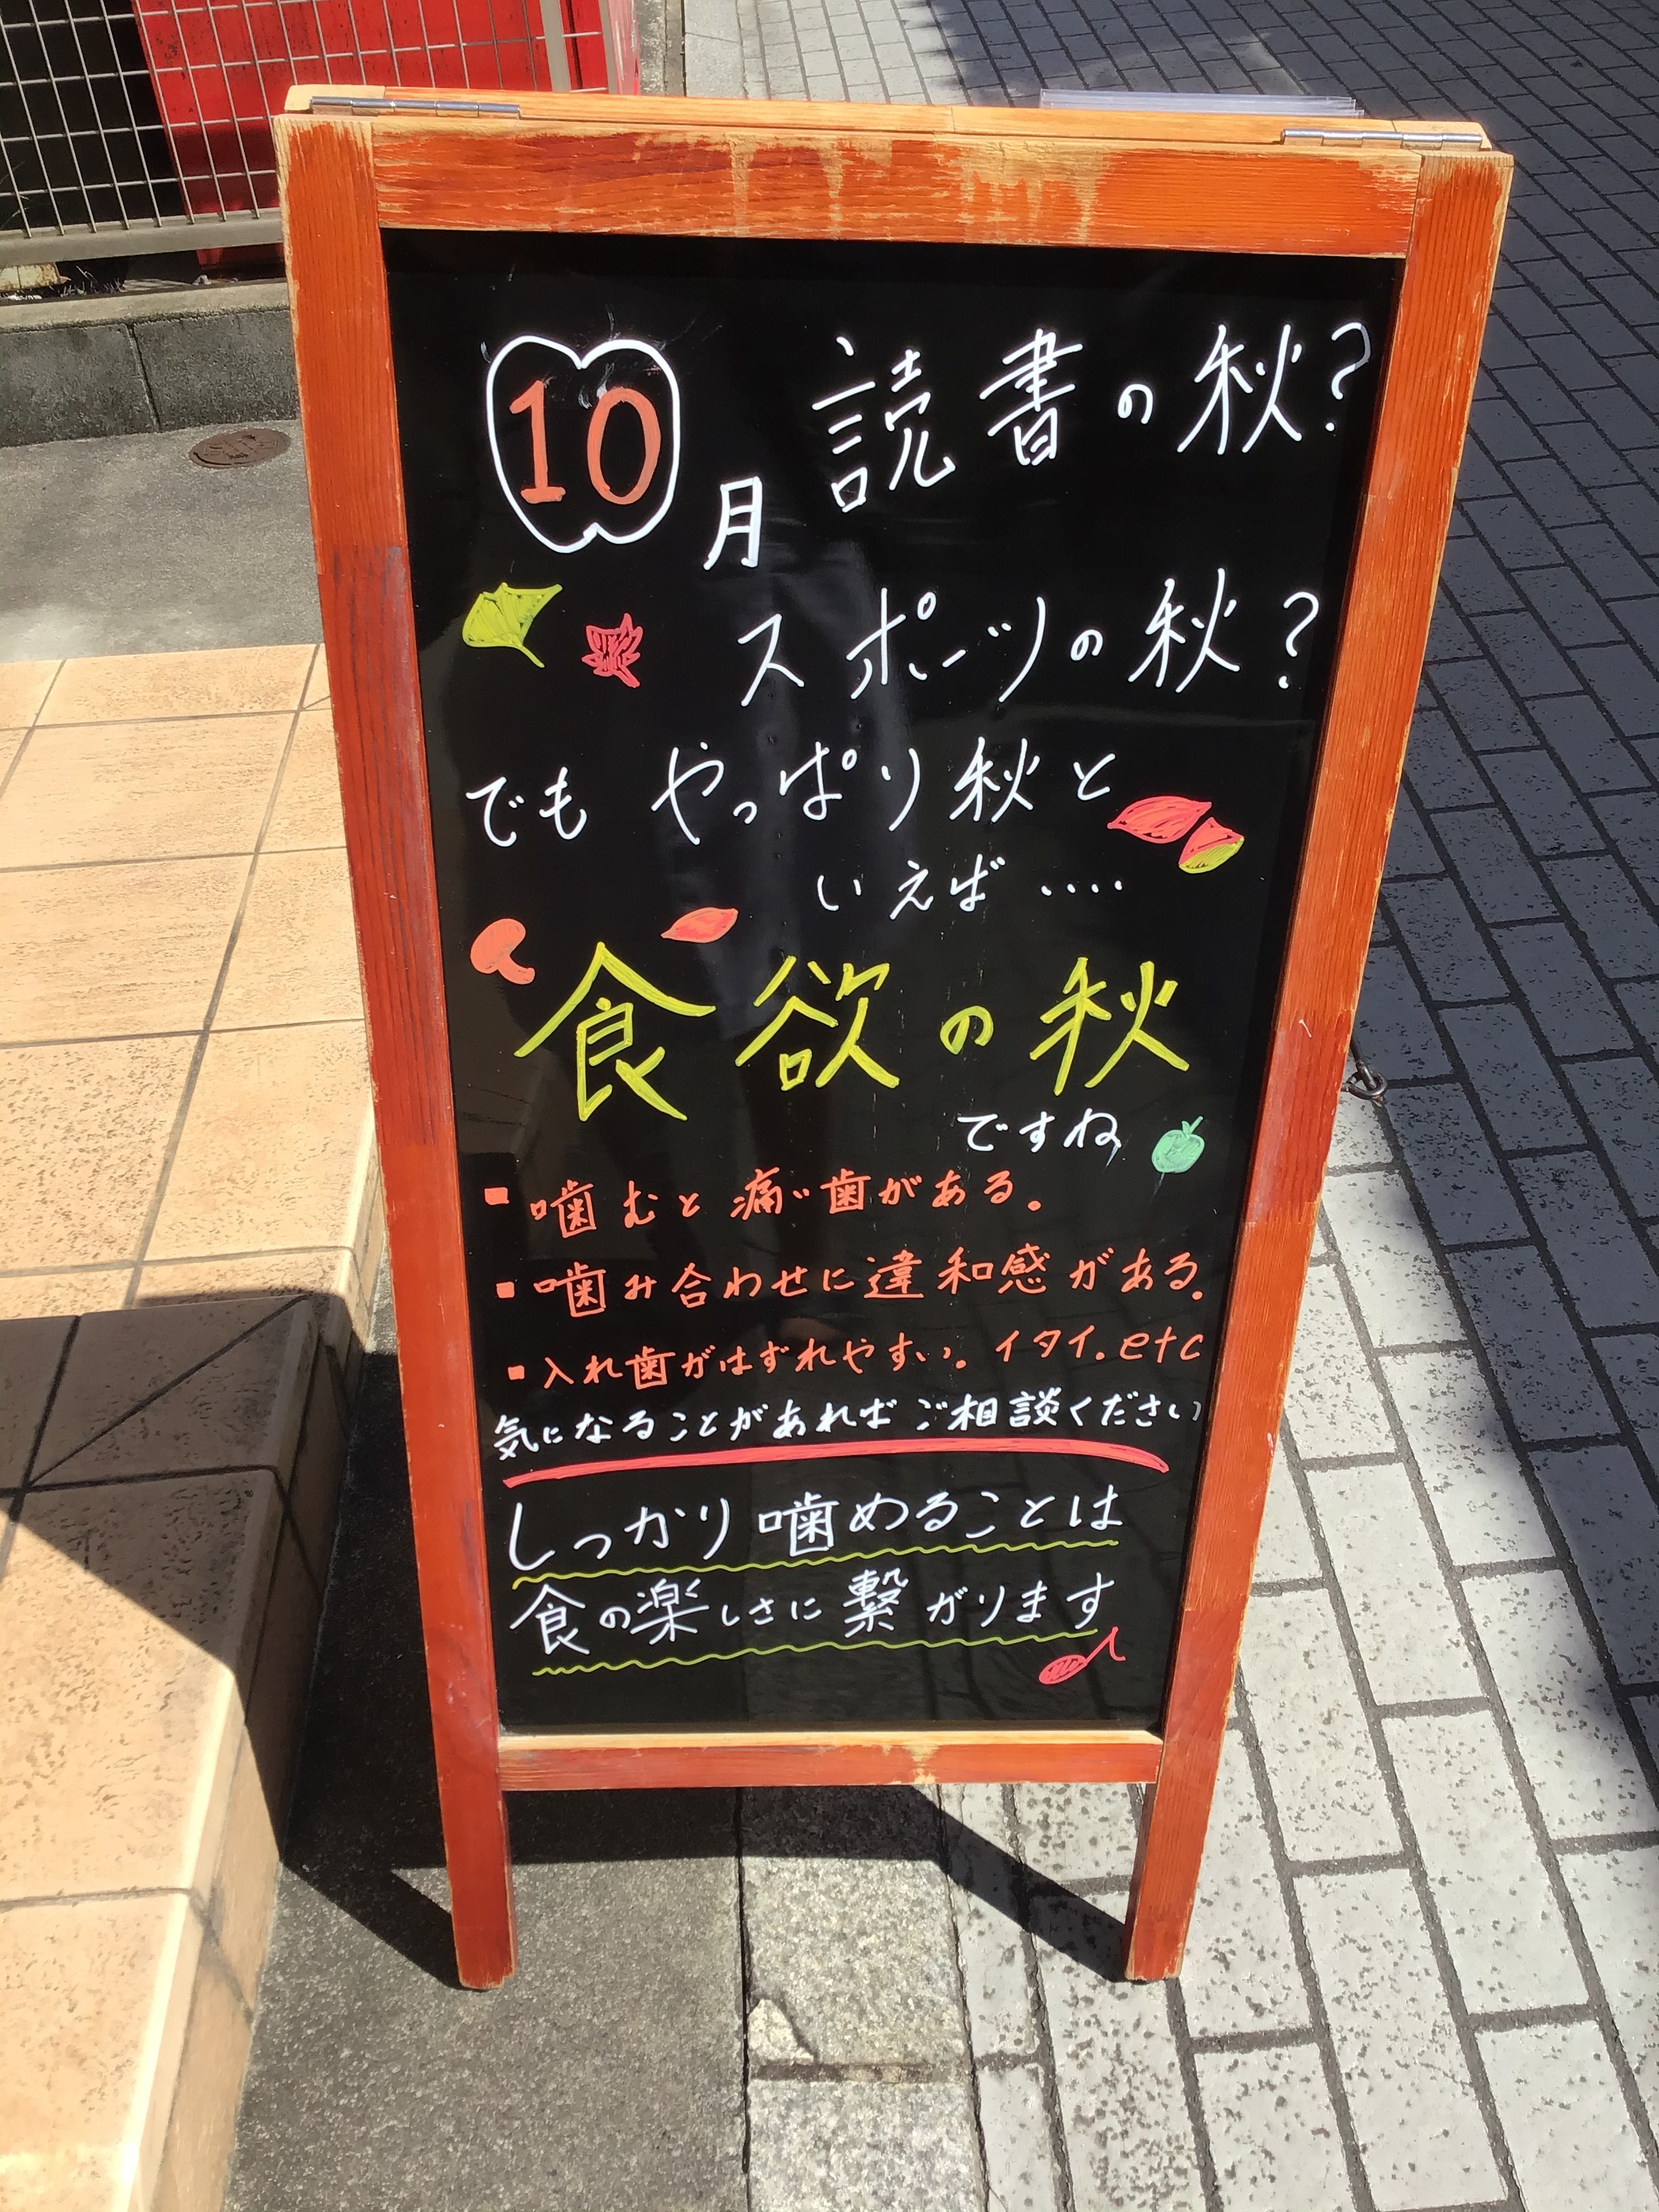 10月 読書の秋?
スポーツの秋?
でも やっぱり秋と
いえば ‥‥
食欲の秋
ですね
▪ 噛むと痛い歯がある。
▪ 噛み合わせに違和感がある。
▪ 入れ歯がはずれやすい。イタイ.etc
気になることがあればご相談ください
しっかり噛めることは
食の楽しさに繋がります